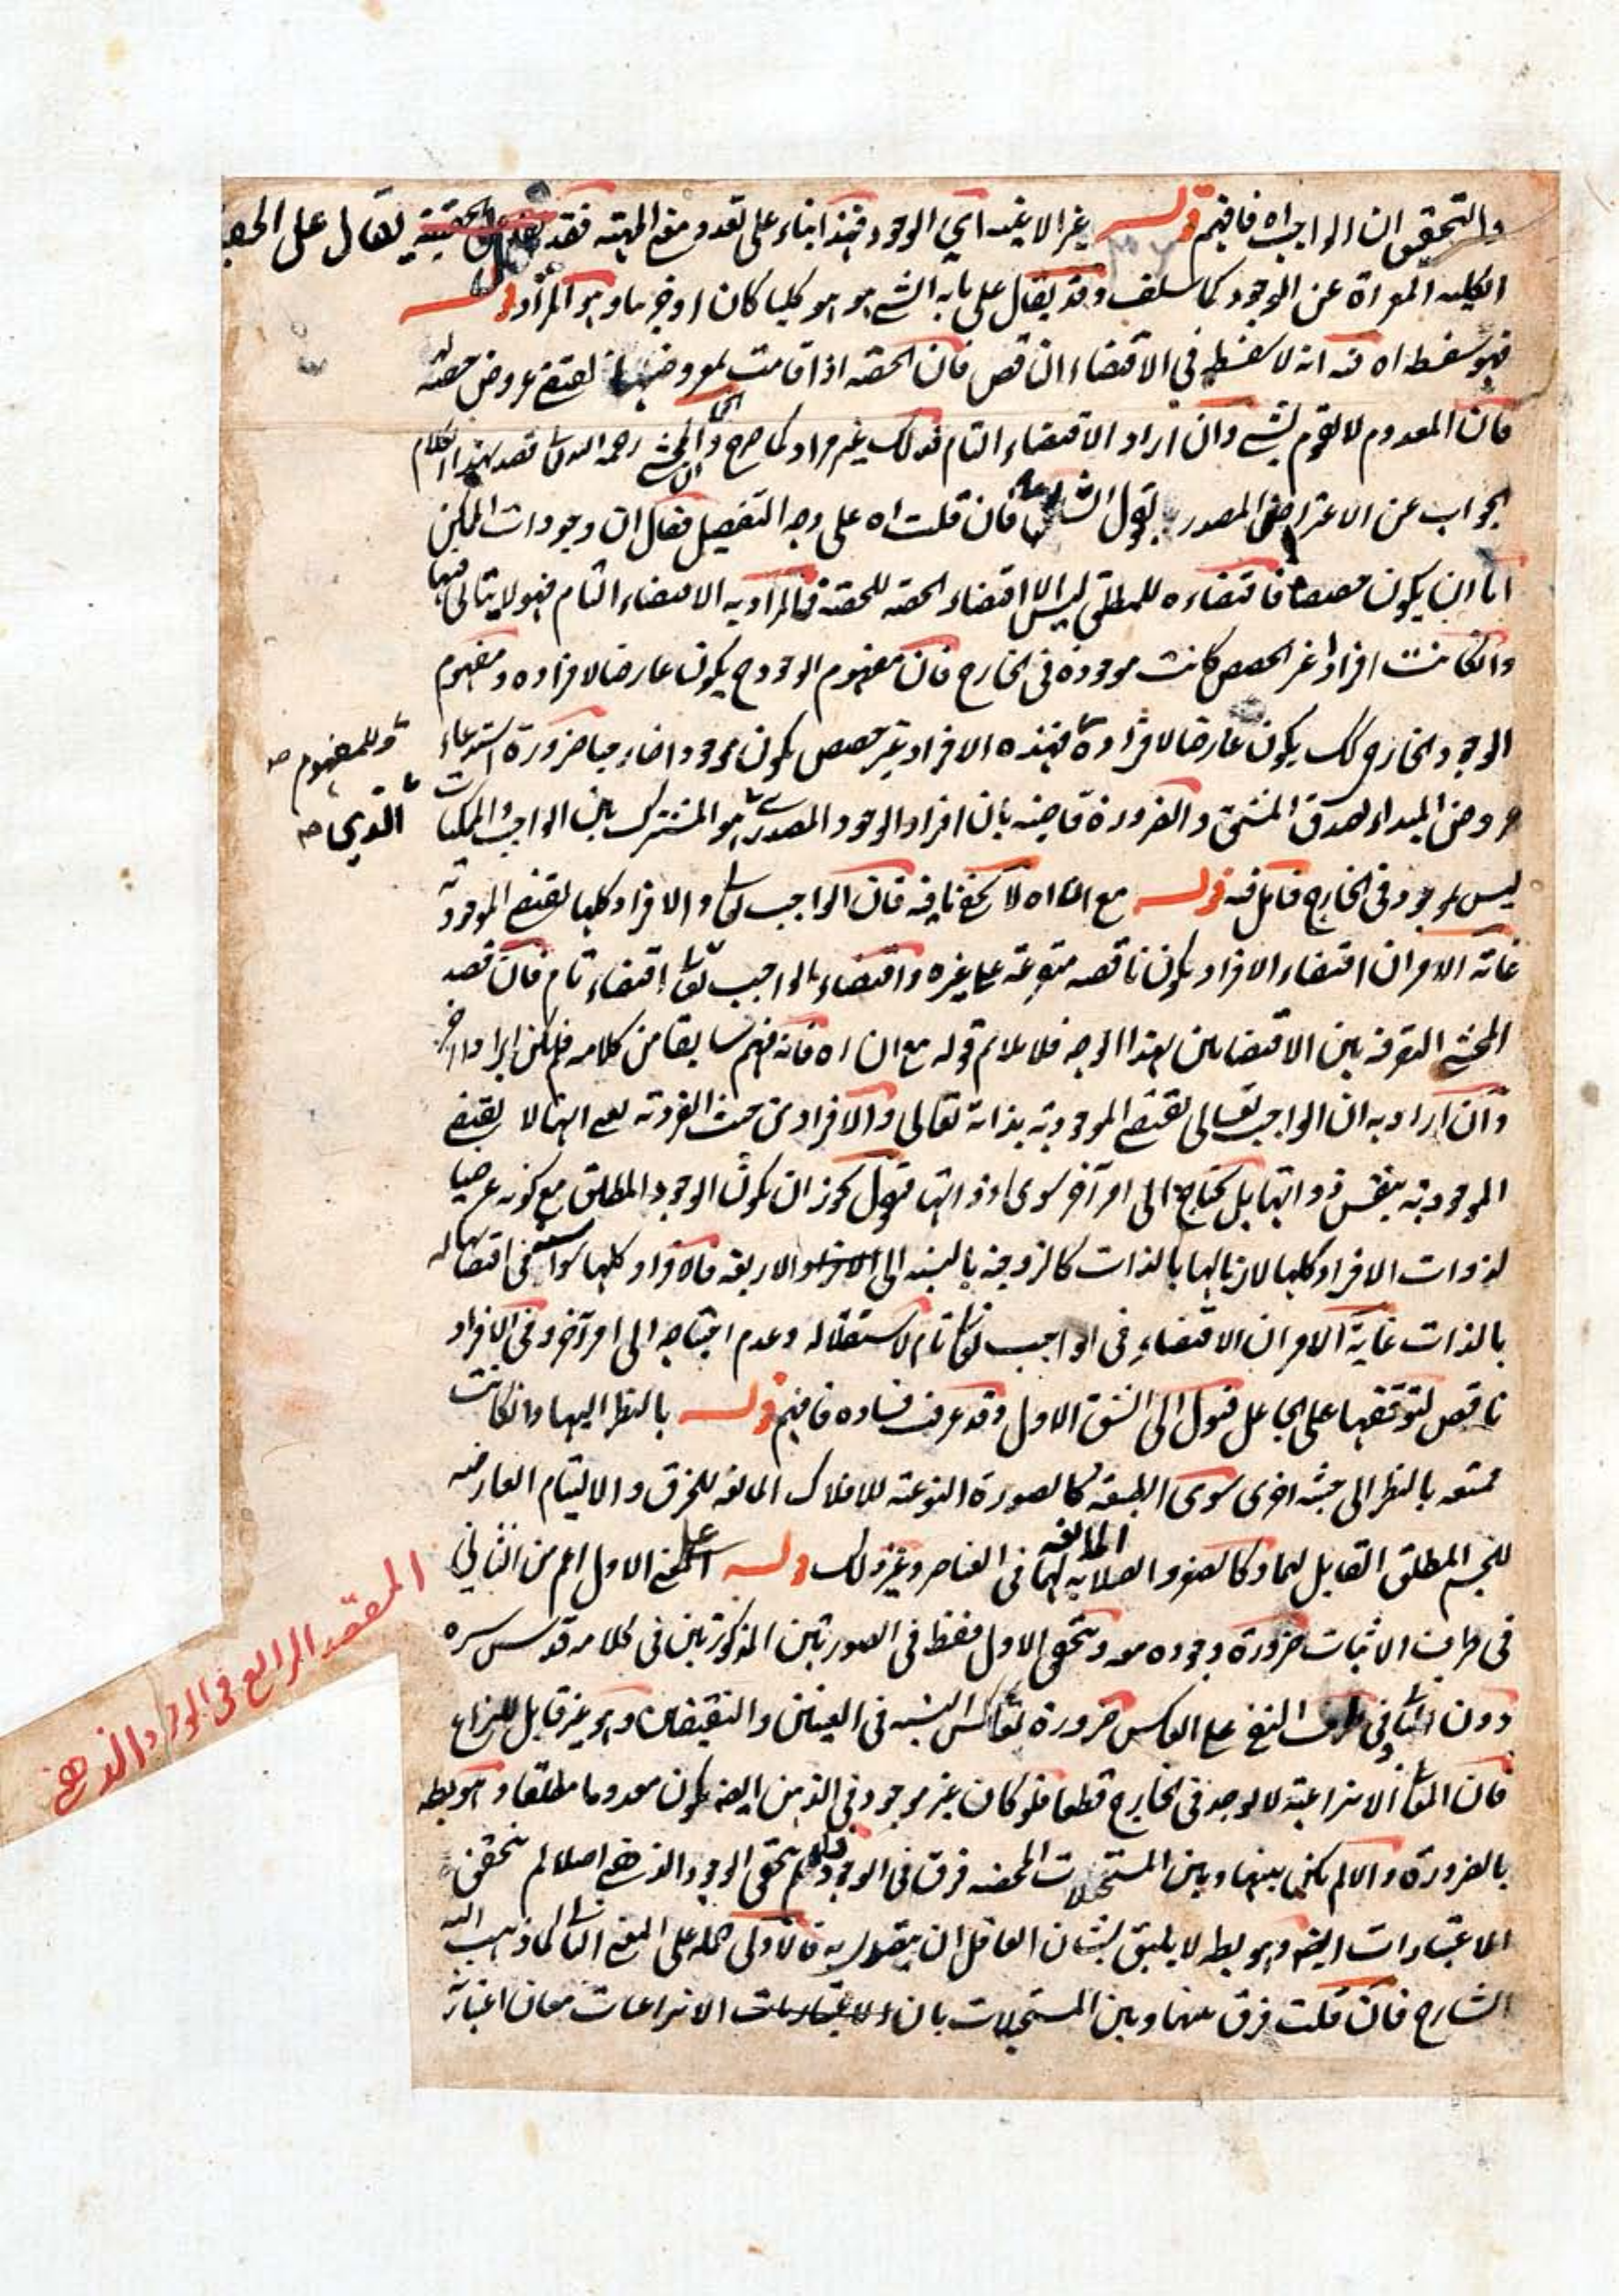 والتحقيق ان الواجب اه فافهم قوله غير الانية اي الوجود فهذا بناء على تعدد معنى المهية فقد يقال على الحقيقة
الكلية المعراة عن الوجود كما سلف وقد يقال على ما به الشئ هو هو كليا كان او جزئيا وهو المراد قوله
فهو سفسطة اه فيه انه لا سفسطة في الاقتضاء الناقص فان الحصة اذا قامت بمعروضها يقتضي عروض حصة
فان المعدوم لا يقوم بشئ وان اراد الاقتضاء التام فذلك غير مراد كما صرح المحشي رحمه الله قصد بهذا الكلام
الجواب عن الاعتراض المصدر بقول الشارح فان قلت اه على وجه التفصيل فقال ان وجودات الممكن
اما ان يكون حصصا فاقتضاءه للمطلق ليس الا اقتضاء الحصة للحصة فالمراد به الاقتضاء التام فهو لا يتاتى فيها
وان كانت افرادا غير الحصص كانت موجودة في الخارج فان مفهوم الوجود ح يكون عارضا لافراده ومفهوم
الموجود الخارجي كك يكون عارضا لافراده فهذه الافراد غير حصص يكون موجودا خارجيا ضرورة استدعاء
وللمفهوم صح
عروض المبداء لصدق المشتق والضرورة قاضية بان افراد الوجود المصدري هو المشترك بين الواجب والممكنات
الذي صح
ليس بموجود في الخارج فتامل فيه قوله مع ان اه لا يخفى ما فيه فان الواجب تعالى والافراد كلها يقتضي الموجودية
غاية الامر ان اقتضاء الافراد يكون ناقصة متوقفة على غيره واقتضاء الواجب تعالى اقتضاء تام فان قصد
المحشي التفرقة بين الاقتضائين بهذا الوجه فلا يلائم قوله مع ان اه فانه فهم سابقا من كلامه فلم يكن ايرادا اخر
وان اراد به ان الواجب تعالى يقتضي الموجودية بذاته تعالى والافراد من حيث الفردية بمعنى انها لا يقتضي
الموجودية بنفس ذواتها بل يحتاج الى امر آخر سوى ذواتها فنقول يجوز ان يكون الوجود المطلق مع كونه عرضيا
لذوات الافراد كلها لازما لها بالذات كالزوجية بالنسبة الى الاربعة فالافراد كلها سواء في اقتضائها له
بالذات غاية الامر ان الاقتضاء في الواجب تعالى تام لاستقلاله وعدم احتياجه الى امر آخر وفي الافراد
ناقص لتوقفها على الجاعل فنقول الى الشق الاول وقد عرفت فساده فافهم قوله بالنظر اليها وان كانت
ممتنعة بالنظر الى جهة اخرى سوى الطبيعة كالصورة النوعية للافلاك المانعة للخرق والالتيام العارضة
للجسم المطلق القابل لهما وكالصغر والصلابة المانعة لهما في العناصر وغير ذلك قوله اعلم المعنى الاول اعم من الثاني
في طرف الاثبات ضرورة وجوده معه وتحقق الاول فقط في الصورتين المذكورتين في كلامه قدس سره
دون الثاني وفي طرف النفي على العكس ضرورة تعاكس النسبة في العينين والنقيضين وهو غير قابل للنزاع
المقصد الرابع في الوجود الذهني
فان المعاني الانتزاعية لا يوجد في الخارج قطعا فلو كان غير موجود في الذهن ايضا يكون معدوما مطلقا وهو بط
بالضرورة والا لم يكن بينها وبين المستحيلات المحضة فرق في الوجود فلو لم يتحقق الوجود الذهني اصلا لم يتحقق
الاعتبارات ايضا وهو بط لا يليق بشان العاقل ان يتفوه به فالاولى حمله على المعنى الثاني كما ذهب اليه
الشارح فان قلت فرق بينها وبين المستحيلات بان الانتزاعيات معان اعتبارية